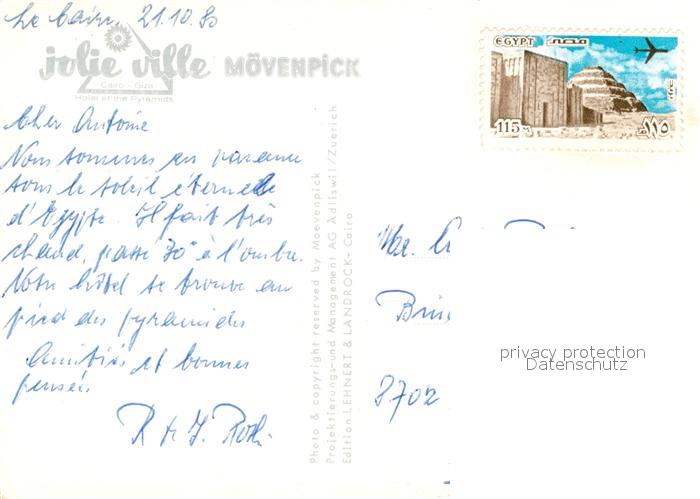 Le Caire, 21.10.80
jolie ville MÖVENPICK
Cairo - Giza
Hotel at the Pyramids
EGYPT مصر
115 M ١١٥
Cher Antoine
Nous sommes en
sous le soleil éternel
d'Egypte. Il fait très
chaud, passé 30° à l'ombre.
Notre hôtel se trouve au
pied des pyramides
Amitiés et bonnes
pensées
R & J. Roth
Photo & copyright reserved by Moevenpick
Projektierungs-und Management AG Adliswil/Zuerich
Edition LEHNERT & LANDROCK - Cairo
8702
privacy protection
Datenschutz